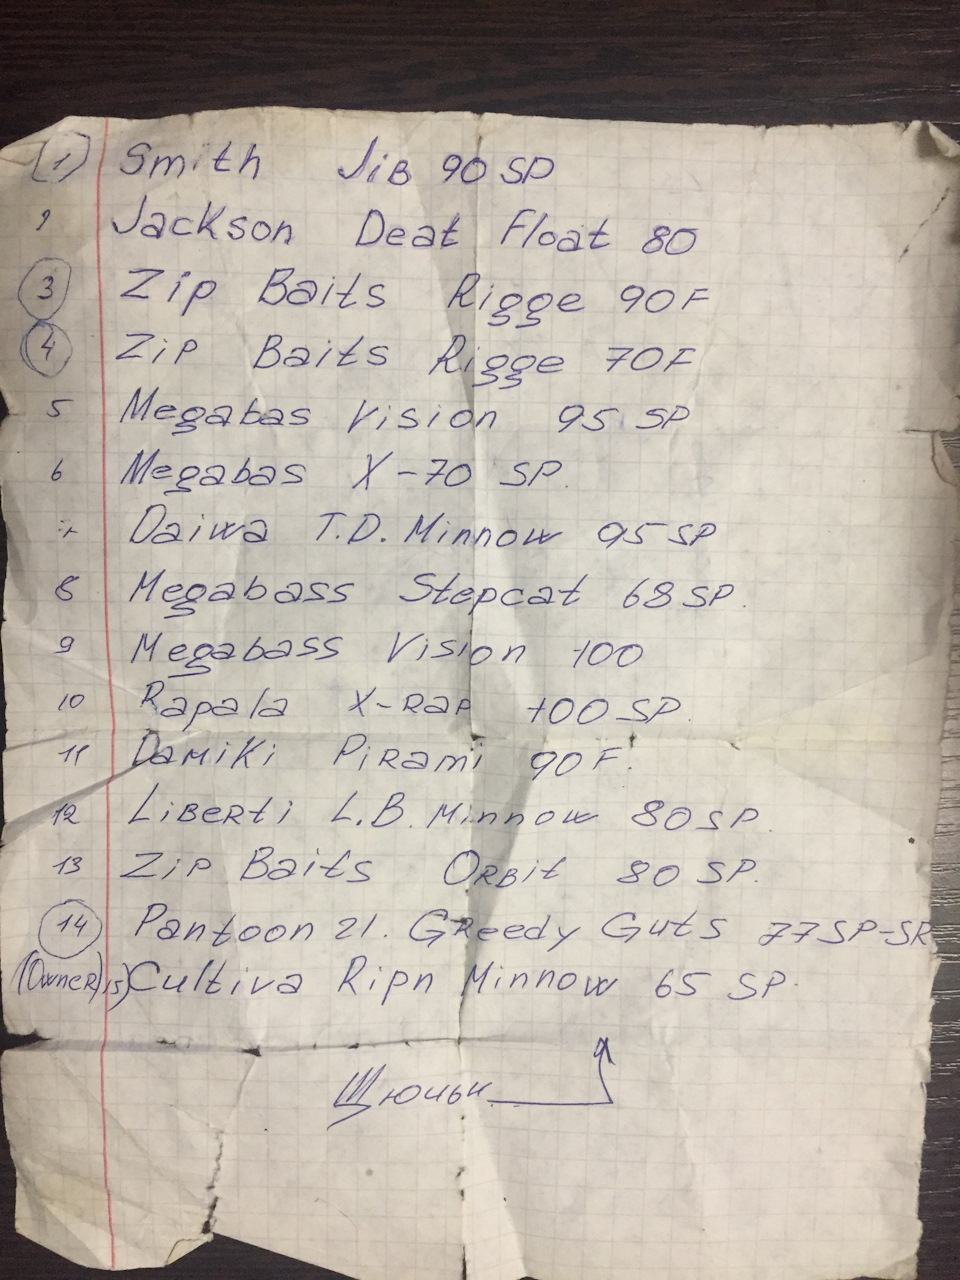 1 Smith Jib 90 SP
2 Jackson Deat Float 80
3 Zip Baits Rigge 90F
4 Zip Baits Rigge 70F
5 Megabas Vision 95 SP
6 Megabas X-70 SP.
7 Daiwa T.D. Minnow 95 SP
8 Megabass Stepcat 68 SP.
9 Megabass Vision 100
10 Rapala X-RAP 100 SP.
11 Damiki Pirami 90F.
12 Liberti L.B. Minnow 80 SP.
13 Zip Baits Orbit 80 SP.
14 Pantoon 21. Greedy Guts 77SP-SR
(Owner) 15) Cultiva Ripn Minnow 65 SP.
Щючьи